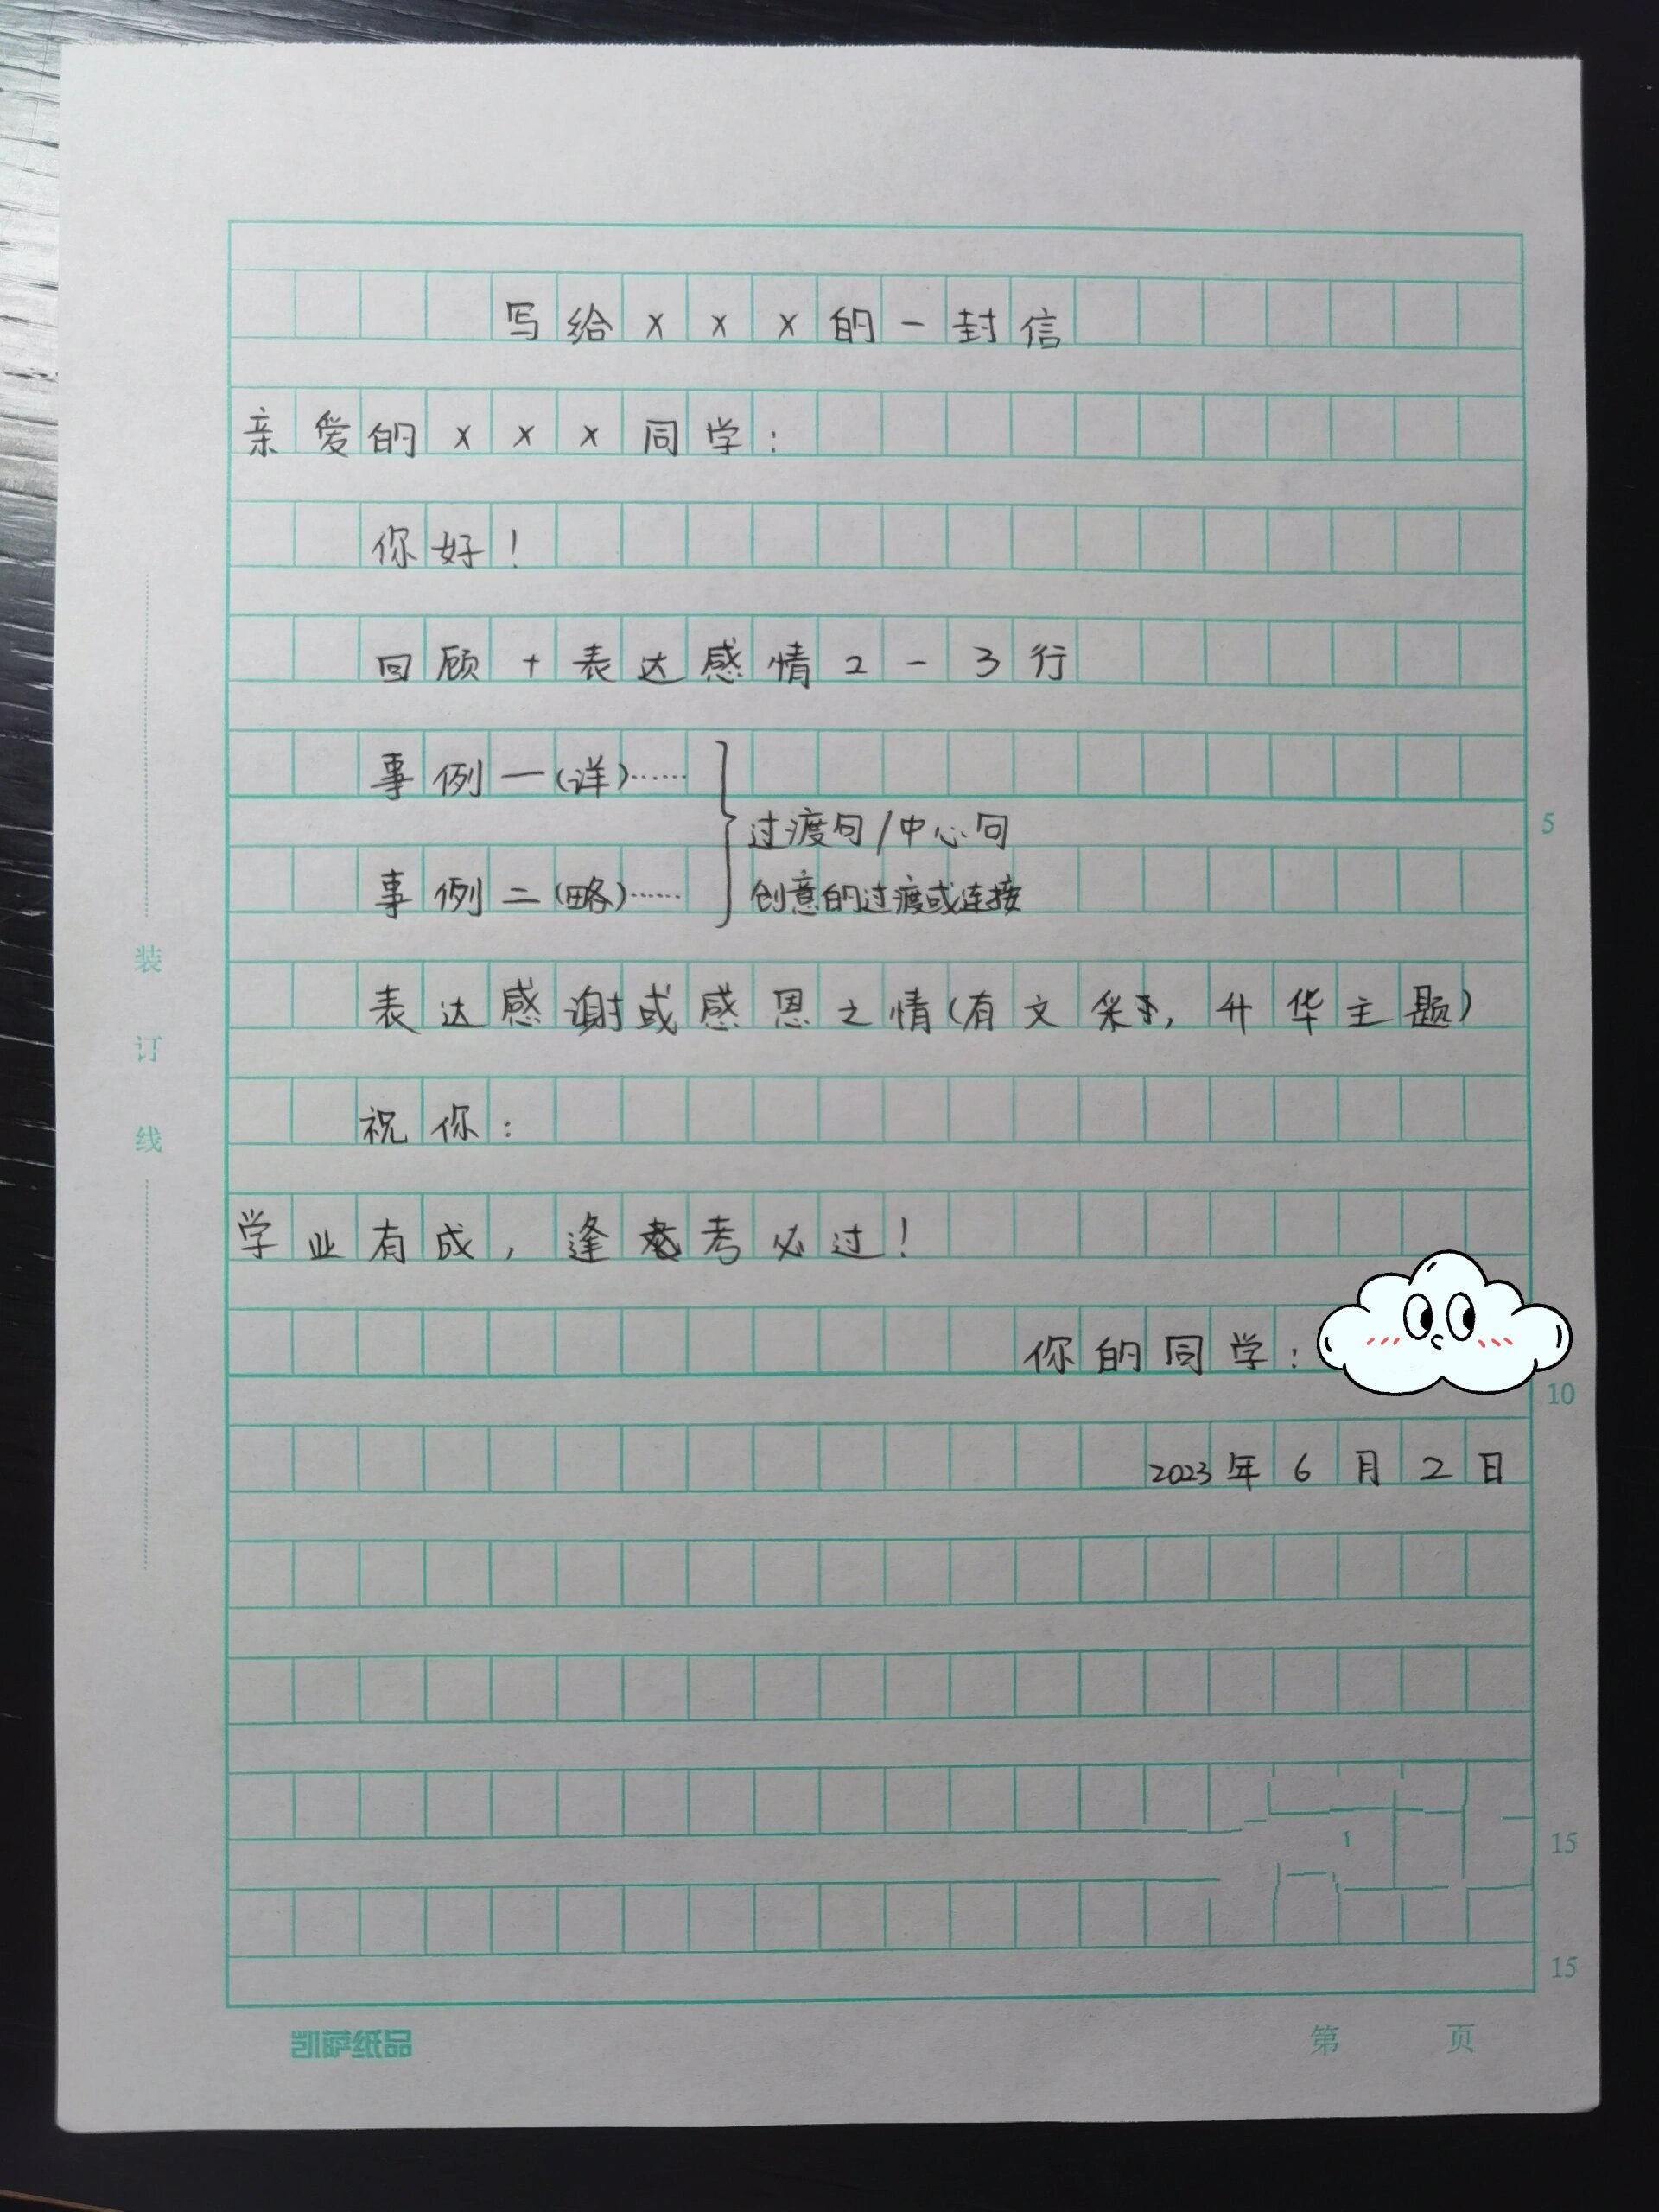 写给×××的一封信
亲爱的×××同学：
你好！
回顾+表达感情2-3行
事例一(详)……
过渡句/中心句
事例二(略)……
创意的过渡或连接
表达感谢或感恩之情(有文采，升华主题)
祝你：
学业有成，逢考必过！
你的同学：
2023年6月2日
5
10
15
15
装
订
线
凯萨纸品
第 页